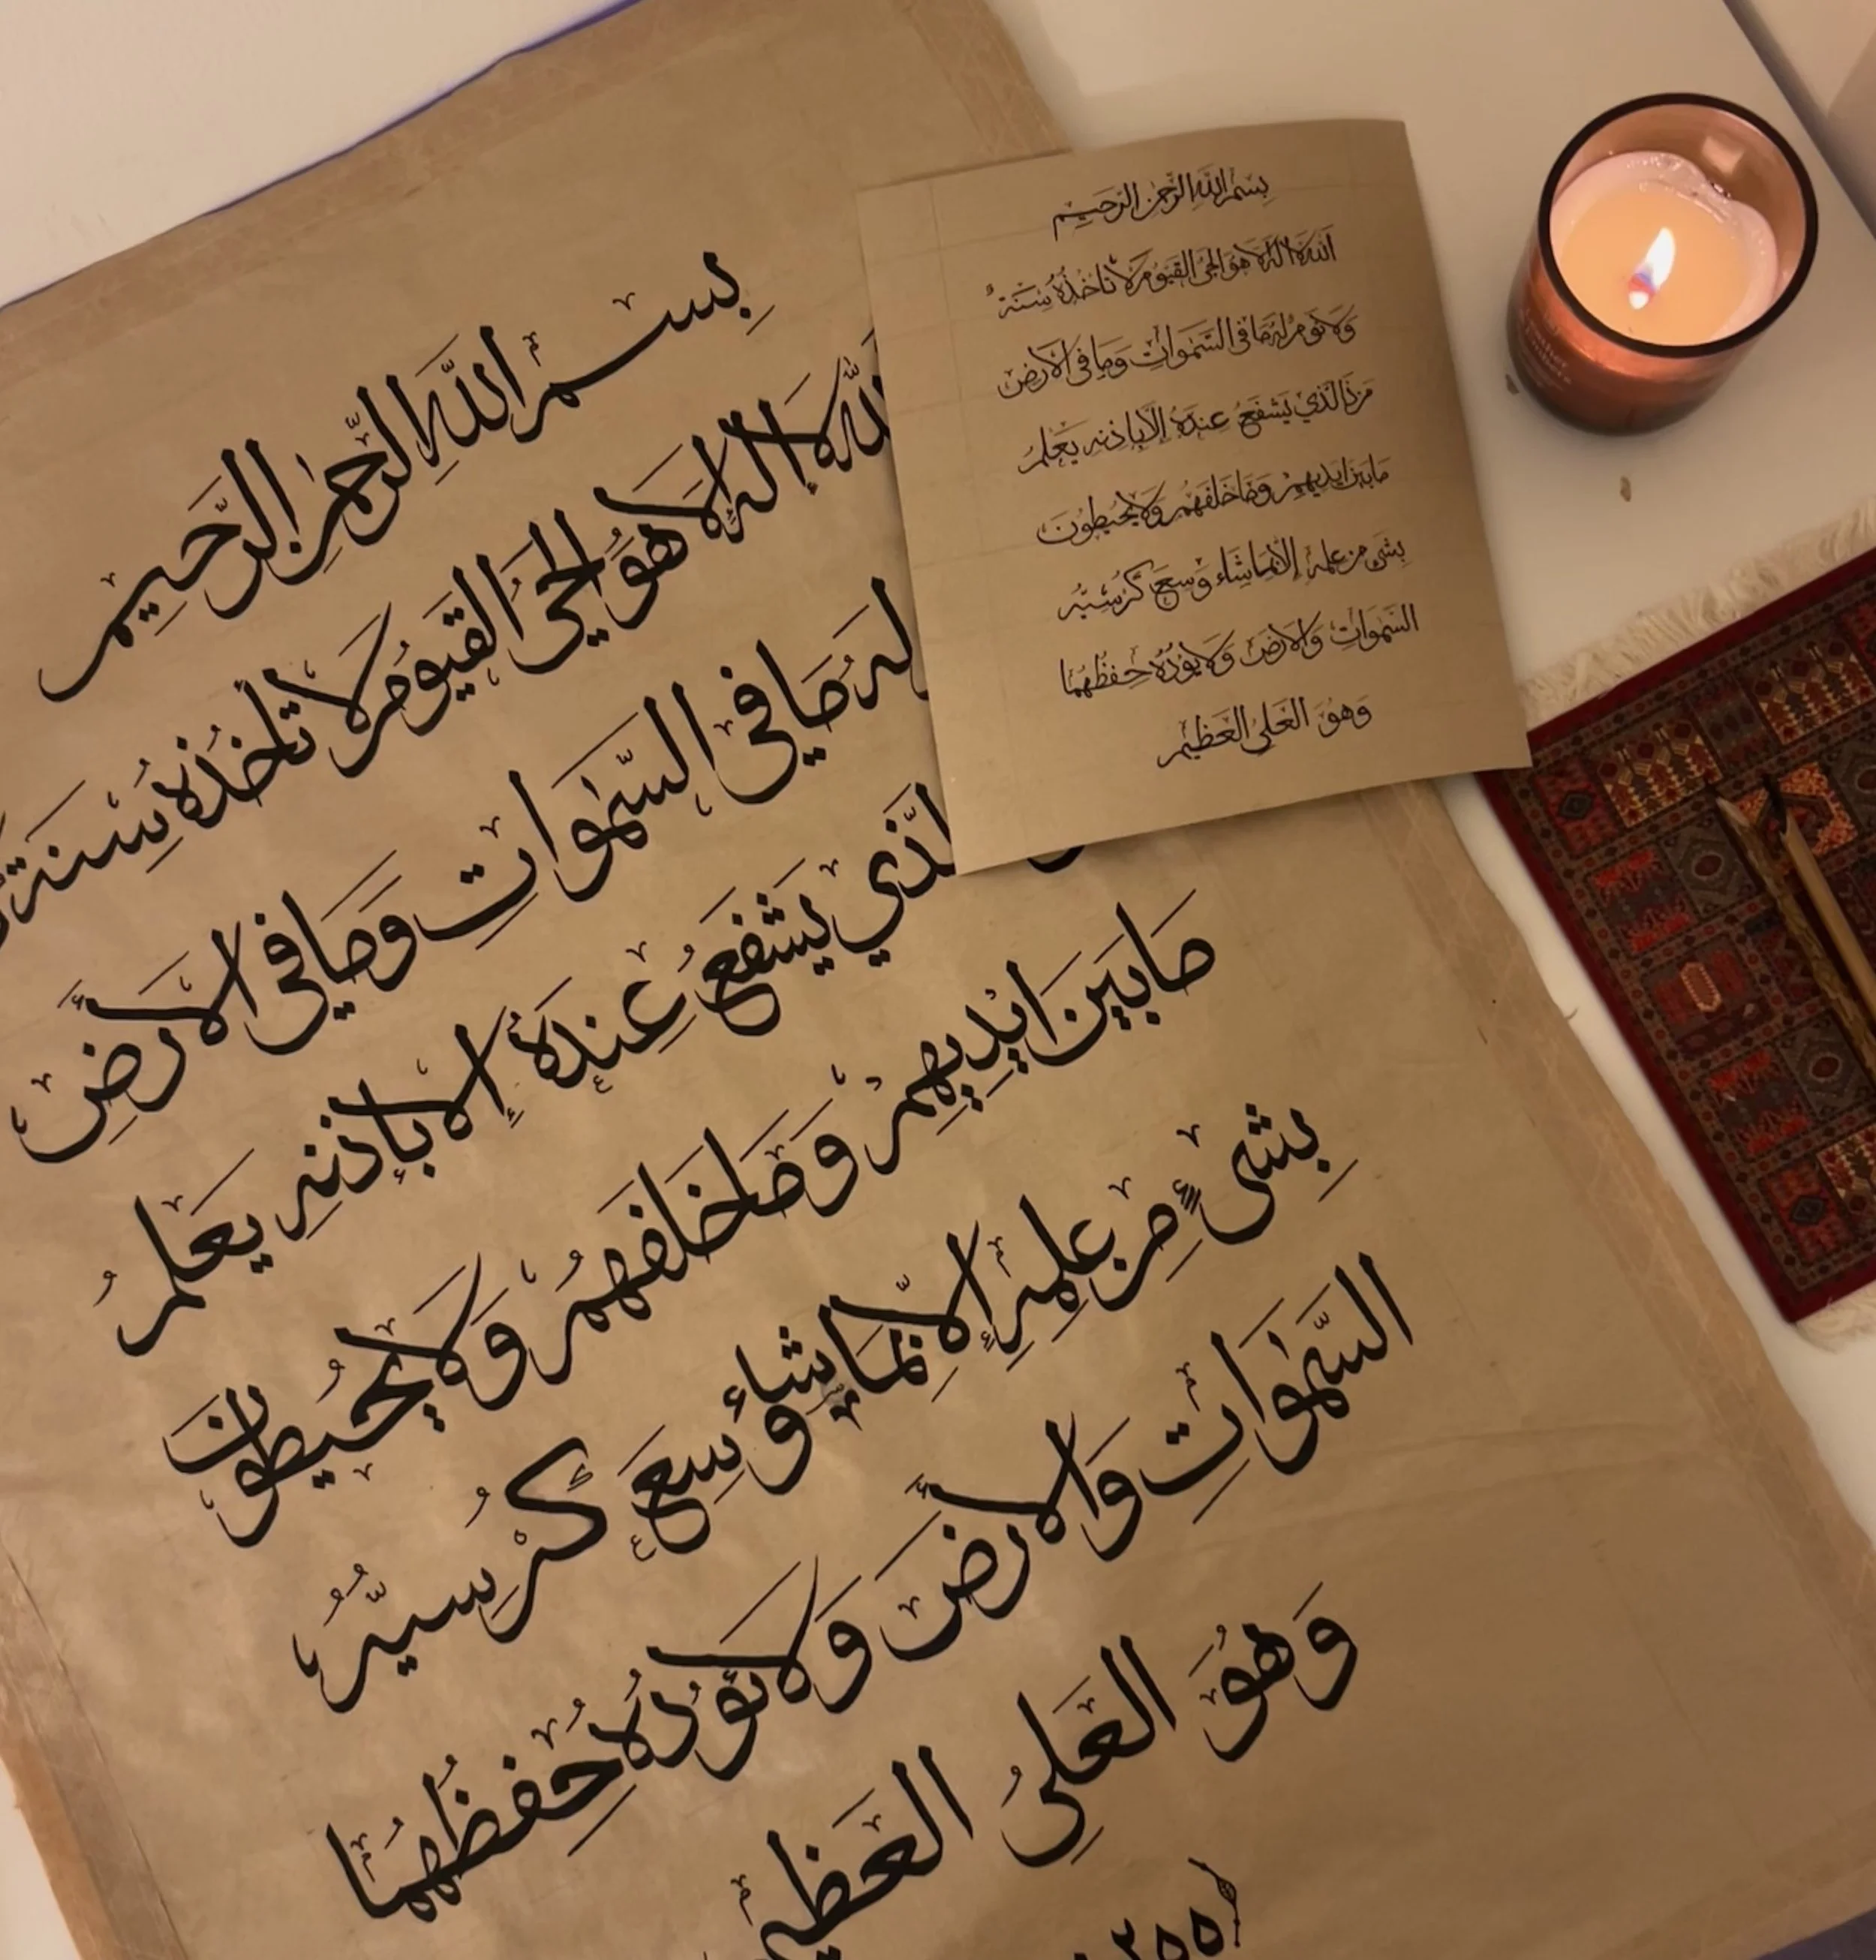 بِسمِ اللَّهِ الرَّحمٰنِ الرَّحِيمِ
اللَّهُ لَا إِلٰهَ إِلَّا هُوَ الحَيُّ القَيُّومُ لَا تَأخُذُهُ سِنَةٌ
لَهُ مَا فِي السَّمٰوَاتِ وَمَا فِي الأَرضِ
الَّذِي يَشفَعُ عِندَهُ إِلَّا بِإِذنِهِ يَعلَمُ
مَا بَينَ أَيدِيهِمْ وَمَا خَلفَهُمْ وَلَا يُحِيطُونَ
بِشَيءٍ مِن عِلمِهِ إِلَّا بِمَا شَاءَ وَسِعَ كُرْسِيُّهُ
السَّمٰوَاتِ وَالأَرضَ وَلَا يَؤُدُهُ حِفظُهُمَا
وَهُوَ العَلِيُّ العَظِيمُ
٢٥٥
بسم الله الرحمن الرحيم
الله لا اله الا هو الحي القيوم لا تاخذه سنة
ولا نوم له ما في السموات وما في الارض
من ذا الذي يشفع عنده الا باذنه يعلم
ما بين ايديهم وما خلفهم ولا يحيطون
بشي من علمه الا بما شاء وسع كرسيه
السموات والارض ولا يوده حفظهما
وهو العلي العظيم